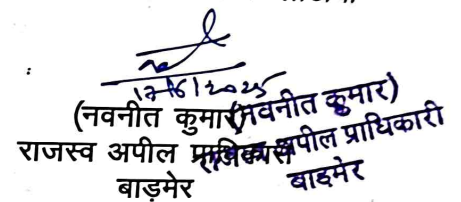 :
17/6/2025
(नवनीत कुमार)
राजस्व अपील प्राधिकारी
बाड़मेर
(नवनीत कुमार)
राजस्व अपील प्राधिकारी
बाड़मेर